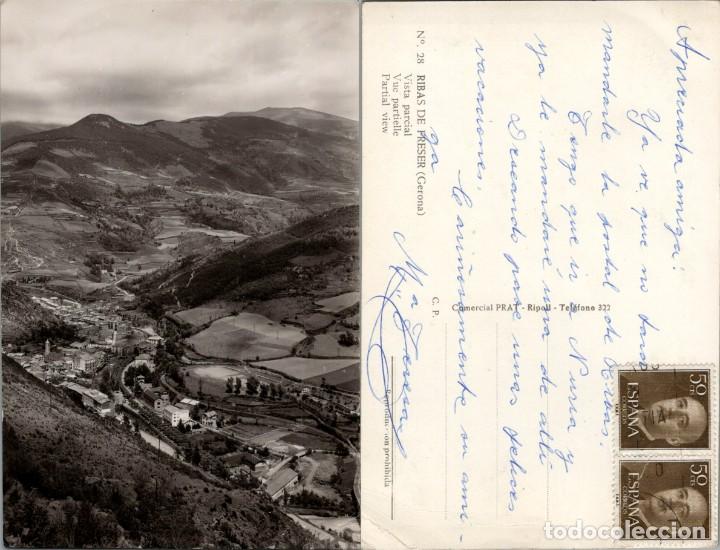 Nº. 28 RIBAS DE FRESER (Gerona)
Vista parcial
Vue partielle
Partial view
Apreciada amiga:
Ya ve que no tardo
mandarle la postal de Ribas.
Tengo que ir a Nuria y
ya le mandaré una de allí
Deseando pase unas felices
vacaciones,
Cariñosamente su ami-
ga
Mª Teresa
C. P.
Comercial PRAT - Ripoll - Teléfono 322
Reproducción prohibida
50
CTS
ESPAÑA
CORREOS
50
CTS
ESPAÑA
CORREOS
todocoleccion.net